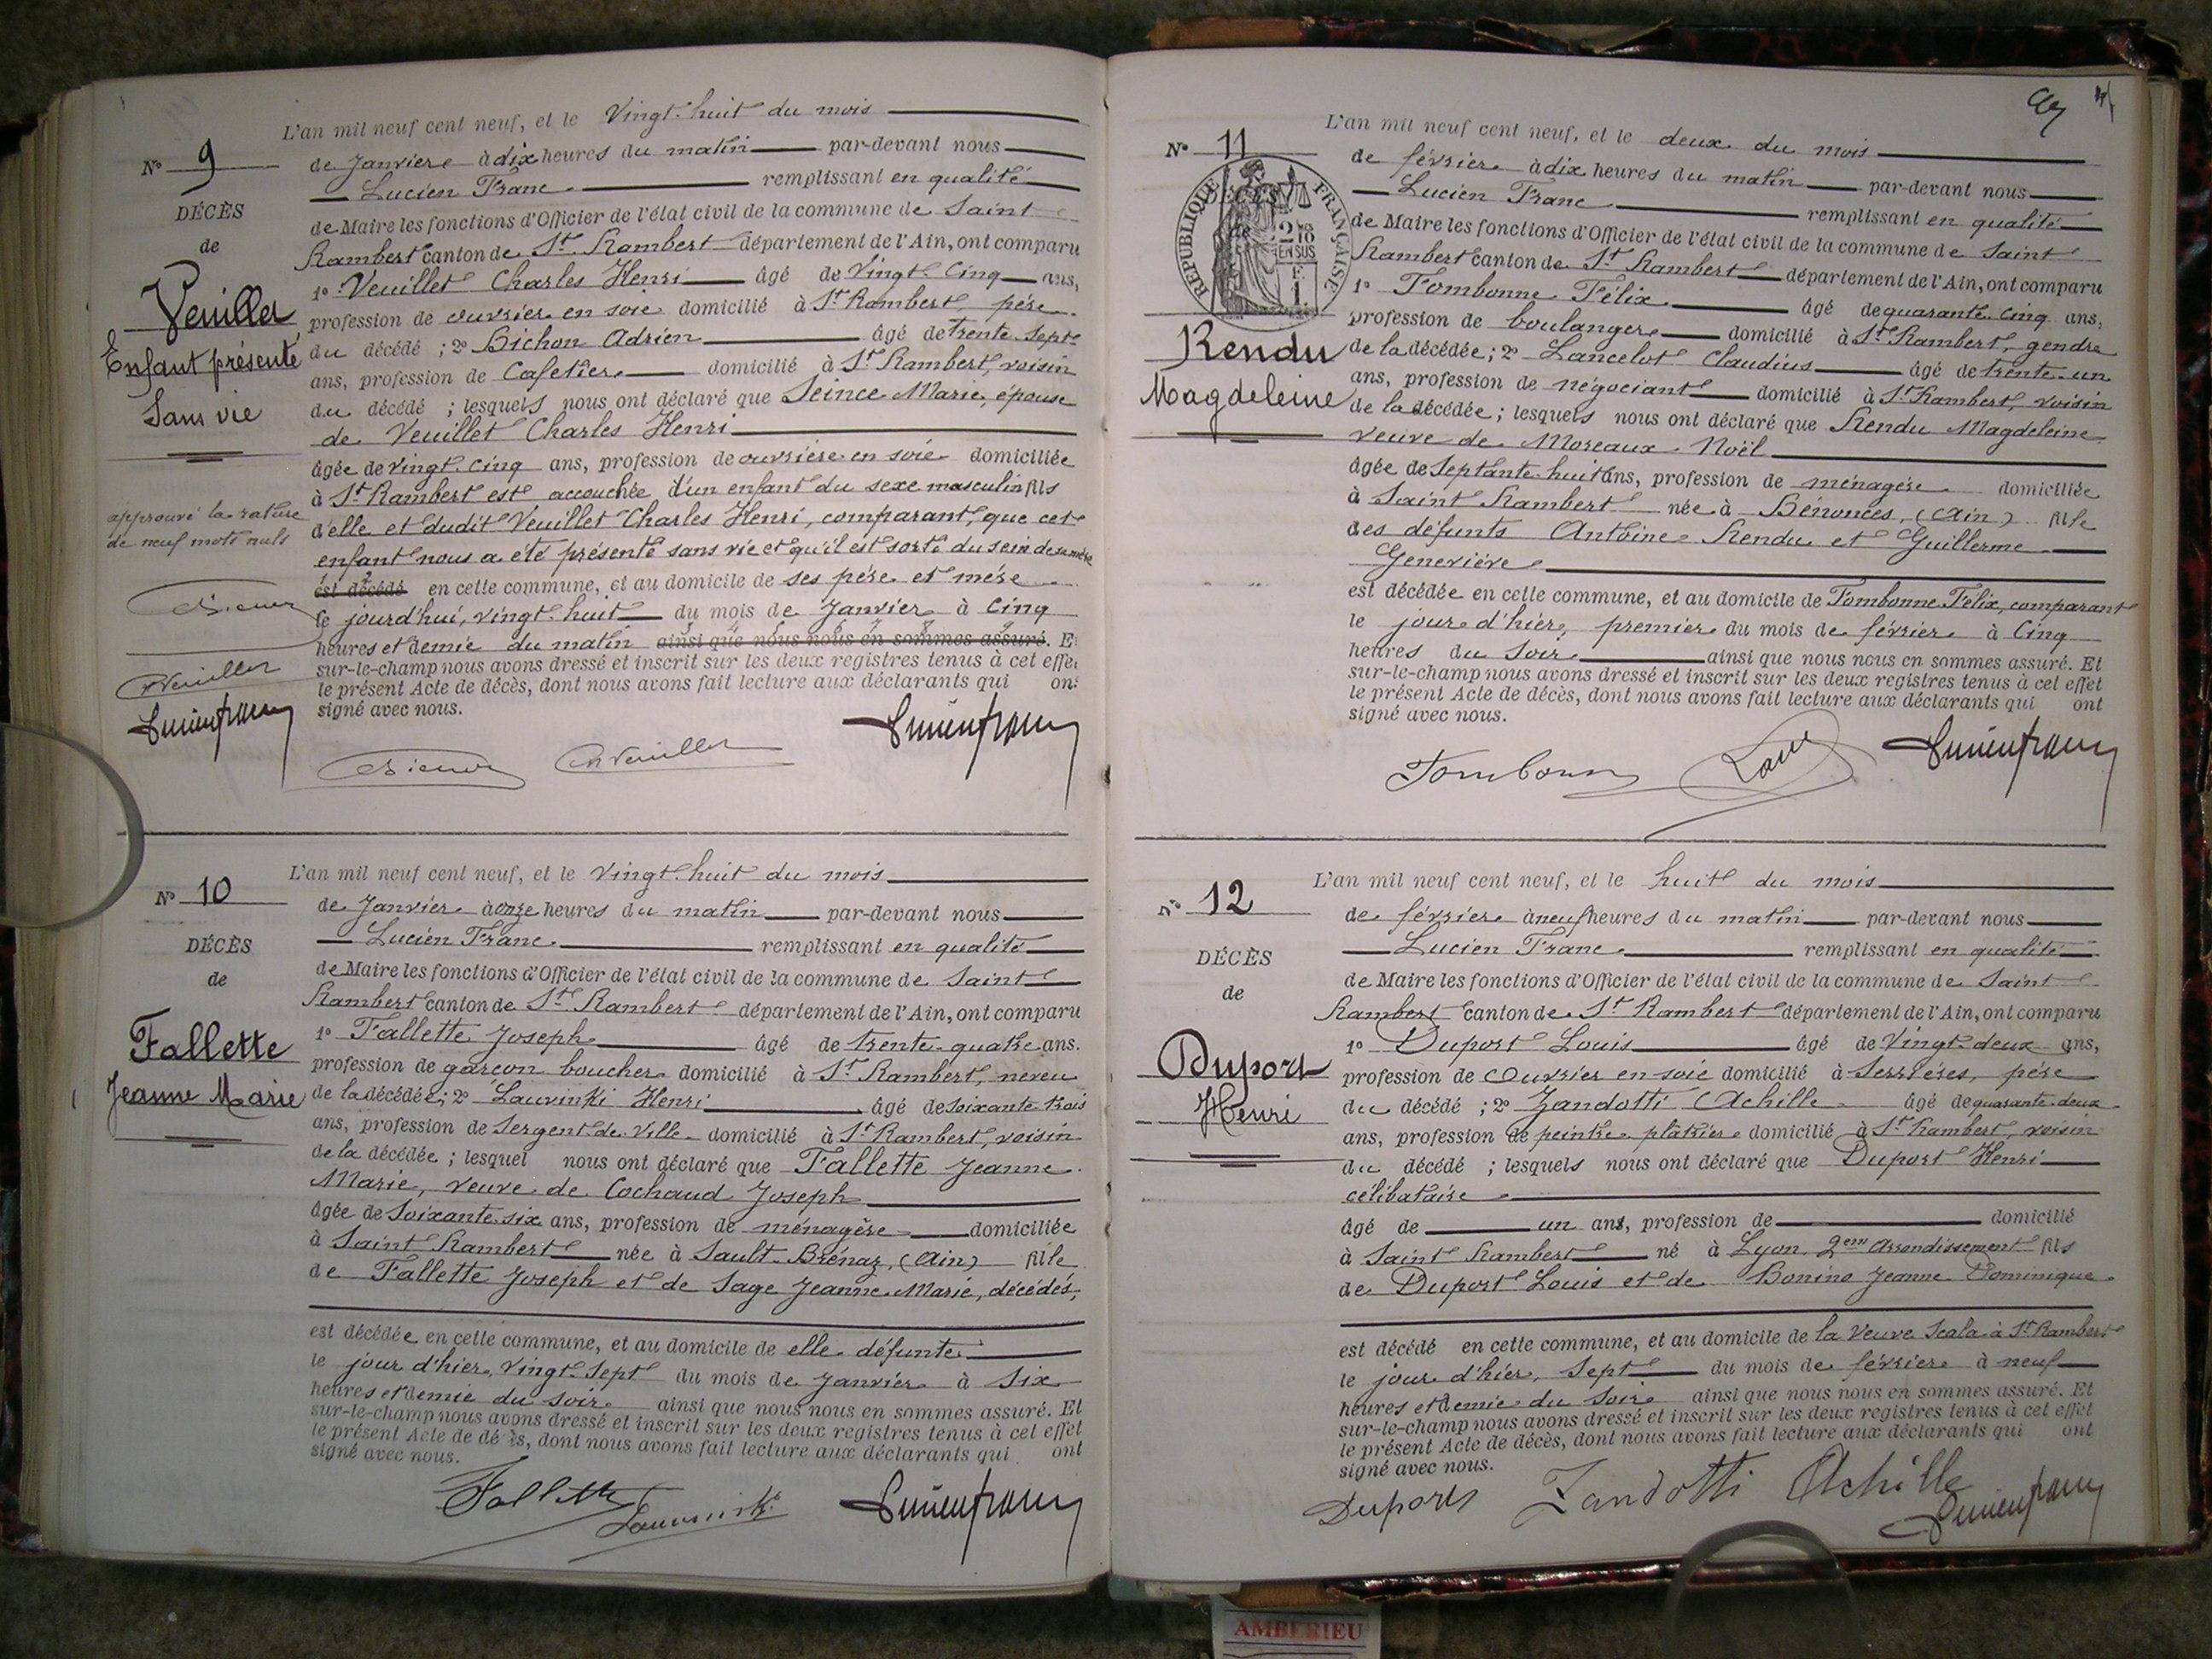 L'an mil neuf cent neuf, et le Vingt-huit du mois
N° 9
de Janvier à dix heures du matin par-devant nous
Lucien Franc remplissant en qualité
DÉCÈS
de Maire les fonctions d'Officier de l'état civil de la commune de Saint
de
Rambert canton de St Rambert département de l'Ain, ont comparu
Veuillet
1° Veuillet Charles Henri âgé de Vingt-Cinq ans,
profession de ouvrier en soie domicilié à St Rambert, père
Enfant présenté
du décédé ; 2° Bichon Adrien âgé de trente-sept
ans, profession de Cafetier domicilié à St Rambert, voisin
Sans vie
du décédé ; lesquels nous ont déclaré que Seince Marie, épouse
de Veuillet Charles Henri
âgée de vingt-cinq ans, profession de ouvrière en soie domiciliée
à St Rambert est accouchée d'un enfant du sexe masculin fils
approuvé la rature
d'elle et dudit Veuillet Charles Henri, comparant, que cet
de neuf mots nuls
enfant nous a été présenté sans vie et qu'il est sorti du sein de sa mère
est décédé en cette commune, et au domicile de ses père et mère
le jourd'hui, vingt-huit du mois de Janvier à Cinq
heures et demie du matin ainsi que nous nous en sommes assuré. Et
sur-le-champ nous avons dressé et inscrit sur les deux registres tenus à cet effet
le présent Acte de décès, dont nous avons fait lecture aux déclarants qui ont
signé avec nous.
Veuillet
Lucien franc
Veuillet
Lucien franc
L'an mil neuf cent neuf, et le Vingt-huit du mois
N° 10
de Janvier à onze heures du matin par-devant nous
DÉCÈS
Lucien Franc remplissant en qualité
de
de Maire les fonctions d'Officier de l'état civil de la commune de Saint
Rambert canton de St Rambert département de l'Ain, ont comparu
Fallette
1° Fallette Joseph âgé de trente-quatre ans.
profession de garçon boucher domicilié à St Rambert, neveu
Jeanne Marie
de la décédée ; 2° Lauvinki Henri âgé de soixante trois
ans, profession de Sergent de Ville domicilié à St Rambert, voisin
de la décédée ; lesquel nous ont déclaré que Fallette Jeanne
Marie, veuve de Cochaud Joseph
âgée de Soixante-six ans, profession de ménagère domiciliée
à Saint Rambert née à Sault-Brénaz, (Ain) fille
de Fallette Joseph et de Sage Jeanne Marie, décédés,
est décédée en cette commune, et au domicile de elle défunte
le jour d'hier, Vingt-Sept du mois de Janvier à Six
heures et demie du soir ainsi que nous nous en sommes assuré. Et
sur-le-champ nous avons dressé et inscrit sur les deux registres tenus à cet effet
le présent Acte de décès, dont nous avons fait lecture aux déclarants qui ont
signé avec nous.
Fallette
Lucien franc
L'an mil neuf cent neuf, et le deux du mois
N° 11
de février à dix heures du matin par-devant nous
Lucien Franc remplissant en qualité
RÉPUBLIQUE FRANÇAISE
DÉCÈS
de
2/10 EN SUS
F. 1.
de Maire les fonctions d'Officier de l'état civil de la commune de Saint
Rambert canton de St Rambert département de l'Ain, ont comparu
1° Tombonne Félix âgé de quarante cinq ans,
profession de boulanger domicilié à St Rambert, gendre
Rendu
de la décédée ; 2° Lancelot Claudius âgé de trente-un
ans, profession de négociant domicilié à St Rambert, voisin
Magdeleine
de la décédée ; lesquels nous ont déclaré que Rendu Magdeleine
veuve de Moreaux Noël
âgée de Septante-huit ans, profession de ménagère domiciliée
à Saint Rambert née à Bénonces, (Ain) fille
des défunts Antoine Rendu et Guillerme
Geneviève
est décédée en cette commune, et au domicile de Tombonne Félix, comparant
le jour d'hier, premier du mois de février à Cinq
heures du Soir ainsi que nous nous en sommes assuré. Et
sur-le-champ nous avons dressé et inscrit sur les deux registres tenus à cet effet
le présent Acte de décès, dont nous avons fait lecture aux déclarants qui ont
signé avec nous.
Tombonne
Lucien franc
L'an mil neuf cent neuf, et le huit du mois
N° 12
de février à neuf heures du matin par-devant nous
DÉCÈS
Lucien Franc remplissant en qualité
de
de Maire les fonctions d'Officier de l'état civil de la commune de Saint
Rambert canton de St Rambert département de l'Ain, ont comparu
Duport
1° Duport Louis âgé de Vingt-deux ans,
profession de Ouvrier en soie domicilié à Serrières, père
Henri
du décédé ; 2° Zandotti Achille âgé de quarante-deux
ans, profession de peintre plâtrier domicilié à St Rambert, voisin
du décédé ; lesquels nous ont déclaré que Duport Henri
célibataire
âgé de un an, profession de domicilié
à Saint Rambert né à Lyon 2em Arrondissement fils
de Duport Louis et de Bonino Jeanne Dominique
est décédé en cette commune, et au domicile de la Veuve Scala à St Rambert
le jour d'hier, Sept du mois de février à neuf
heures et demie du Soir ainsi que nous nous en sommes assuré. Et
sur-le-champ nous avons dressé et inscrit sur les deux registres tenus à cet effet
le présent Acte de décès, dont nous avons fait lecture aux déclarants qui ont
signé avec nous.
Duport Zandotti Achille
Lucien franc
AMBERIEU